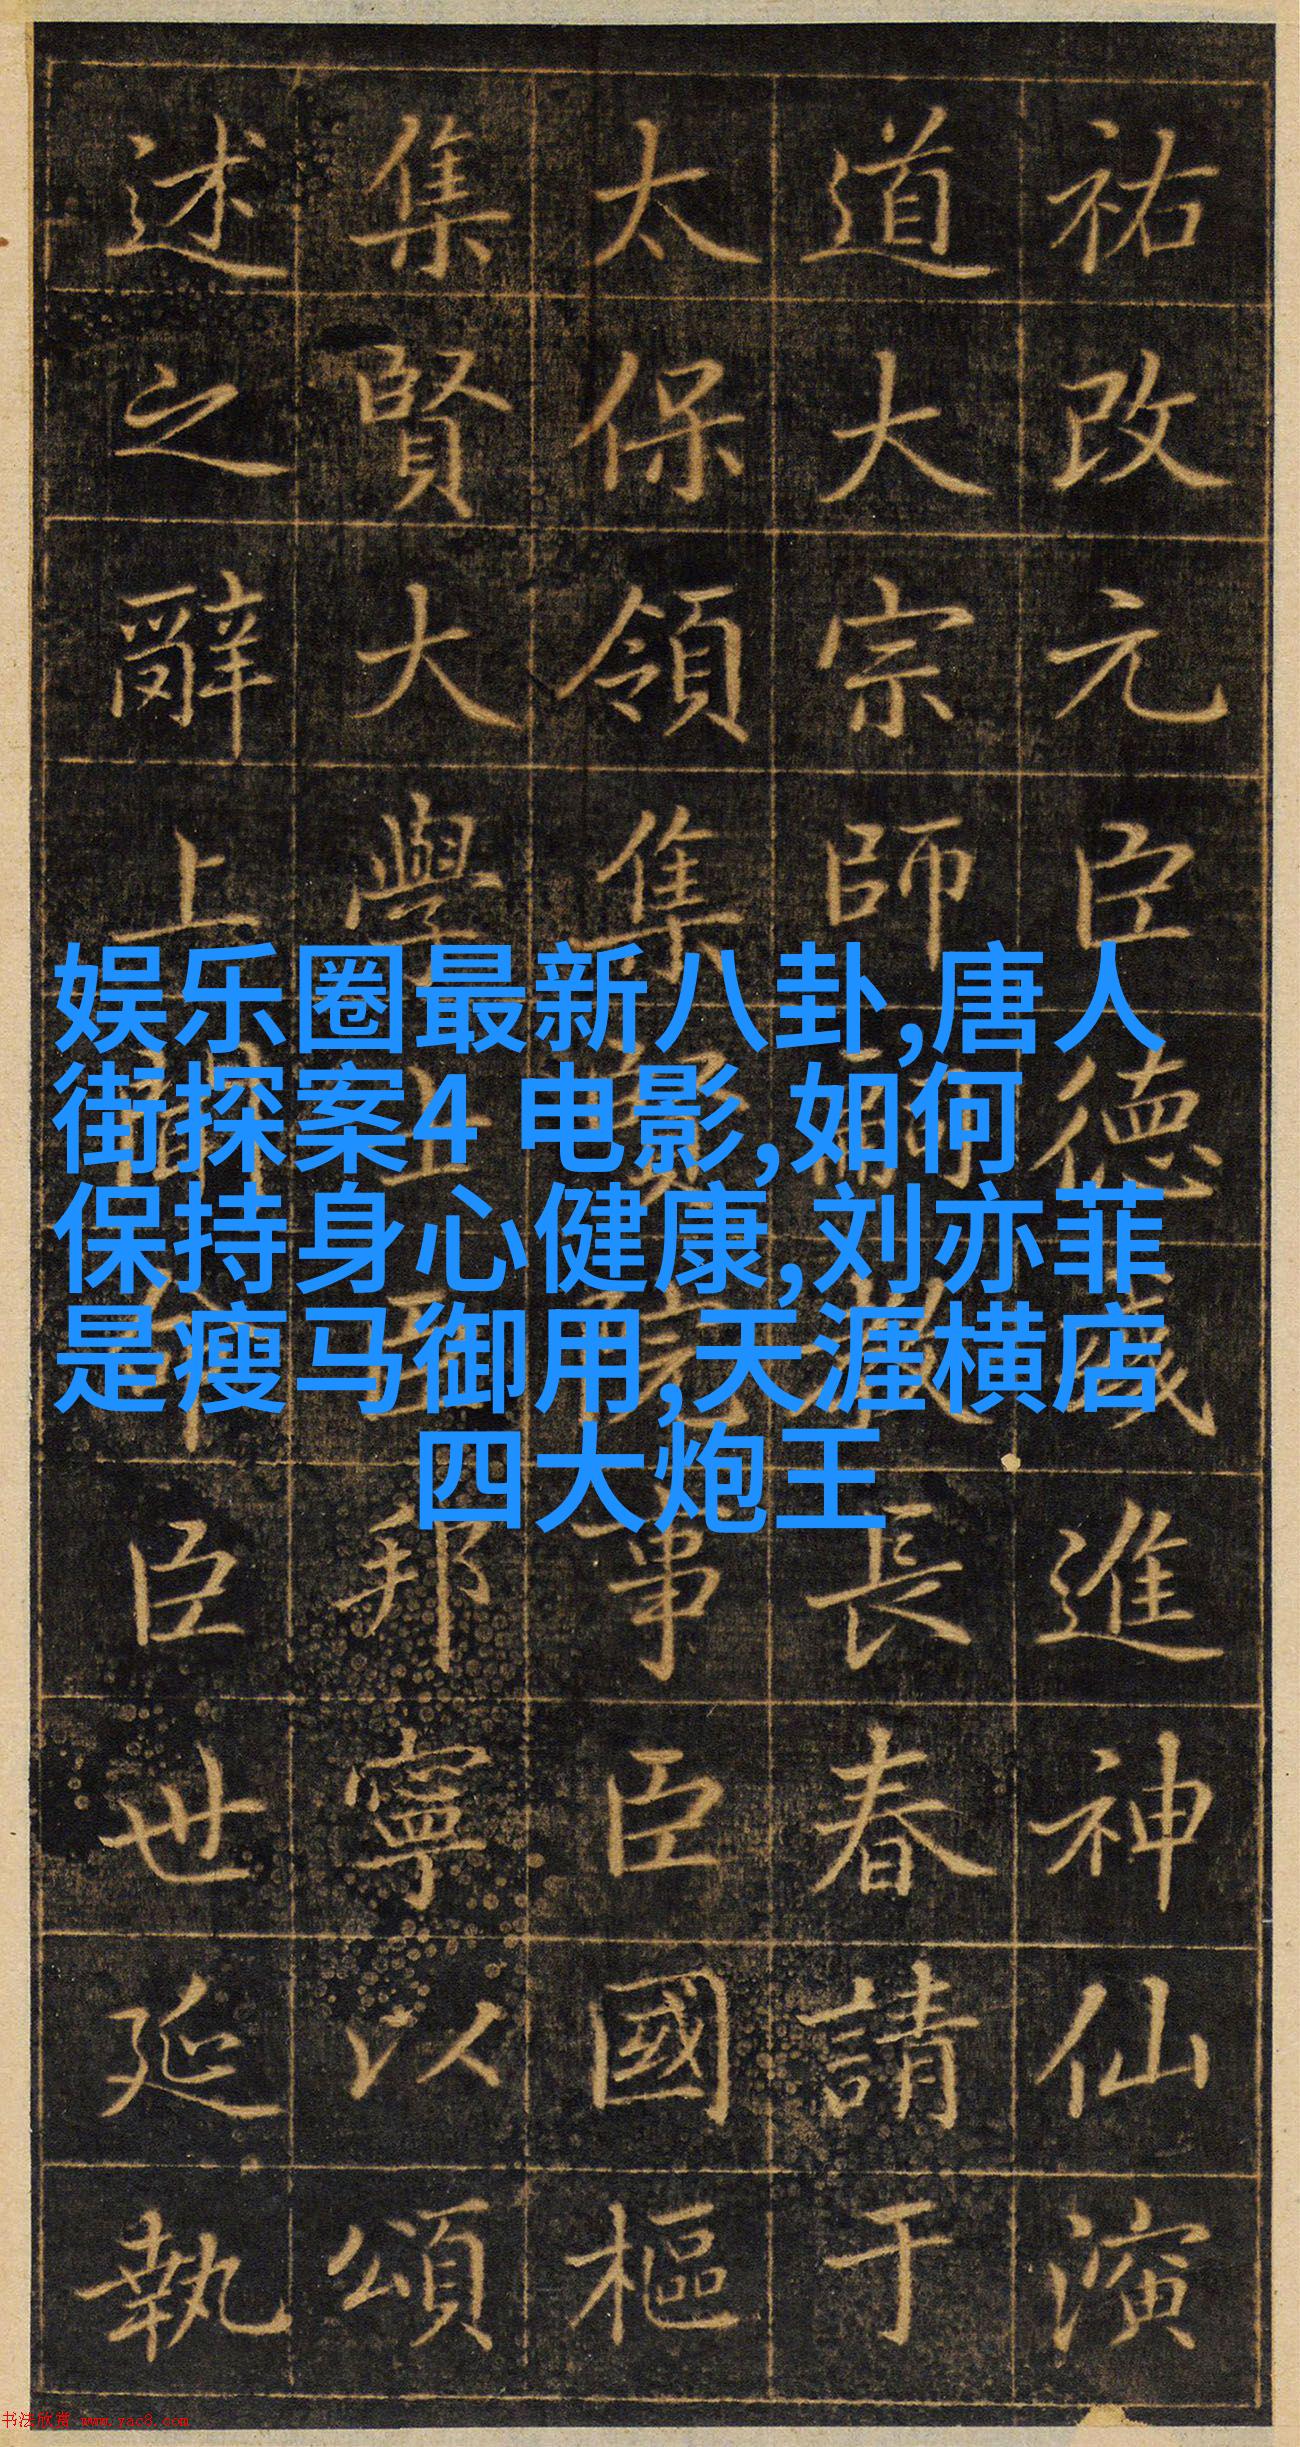 祐改元臣德彧進神仙演
道大宗師嗣長春請于
太保領集賢院事臣國樞
集賢大學士臣邦寧以頌
述之辭上聞命臣世延執
娱乐圈最新八卦,唐人
街探案4 电影,如何
保持身心健康,刘亦菲
是瘦马御用,天涯横店
四大炮王
书法欣赏 www.yac8.com